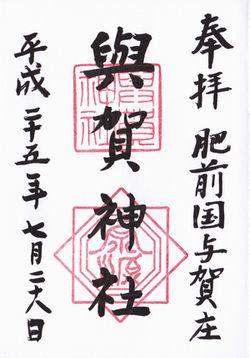 奉拝 肥前国与賀庄
與賀神社
平成二十五年七月二十八日